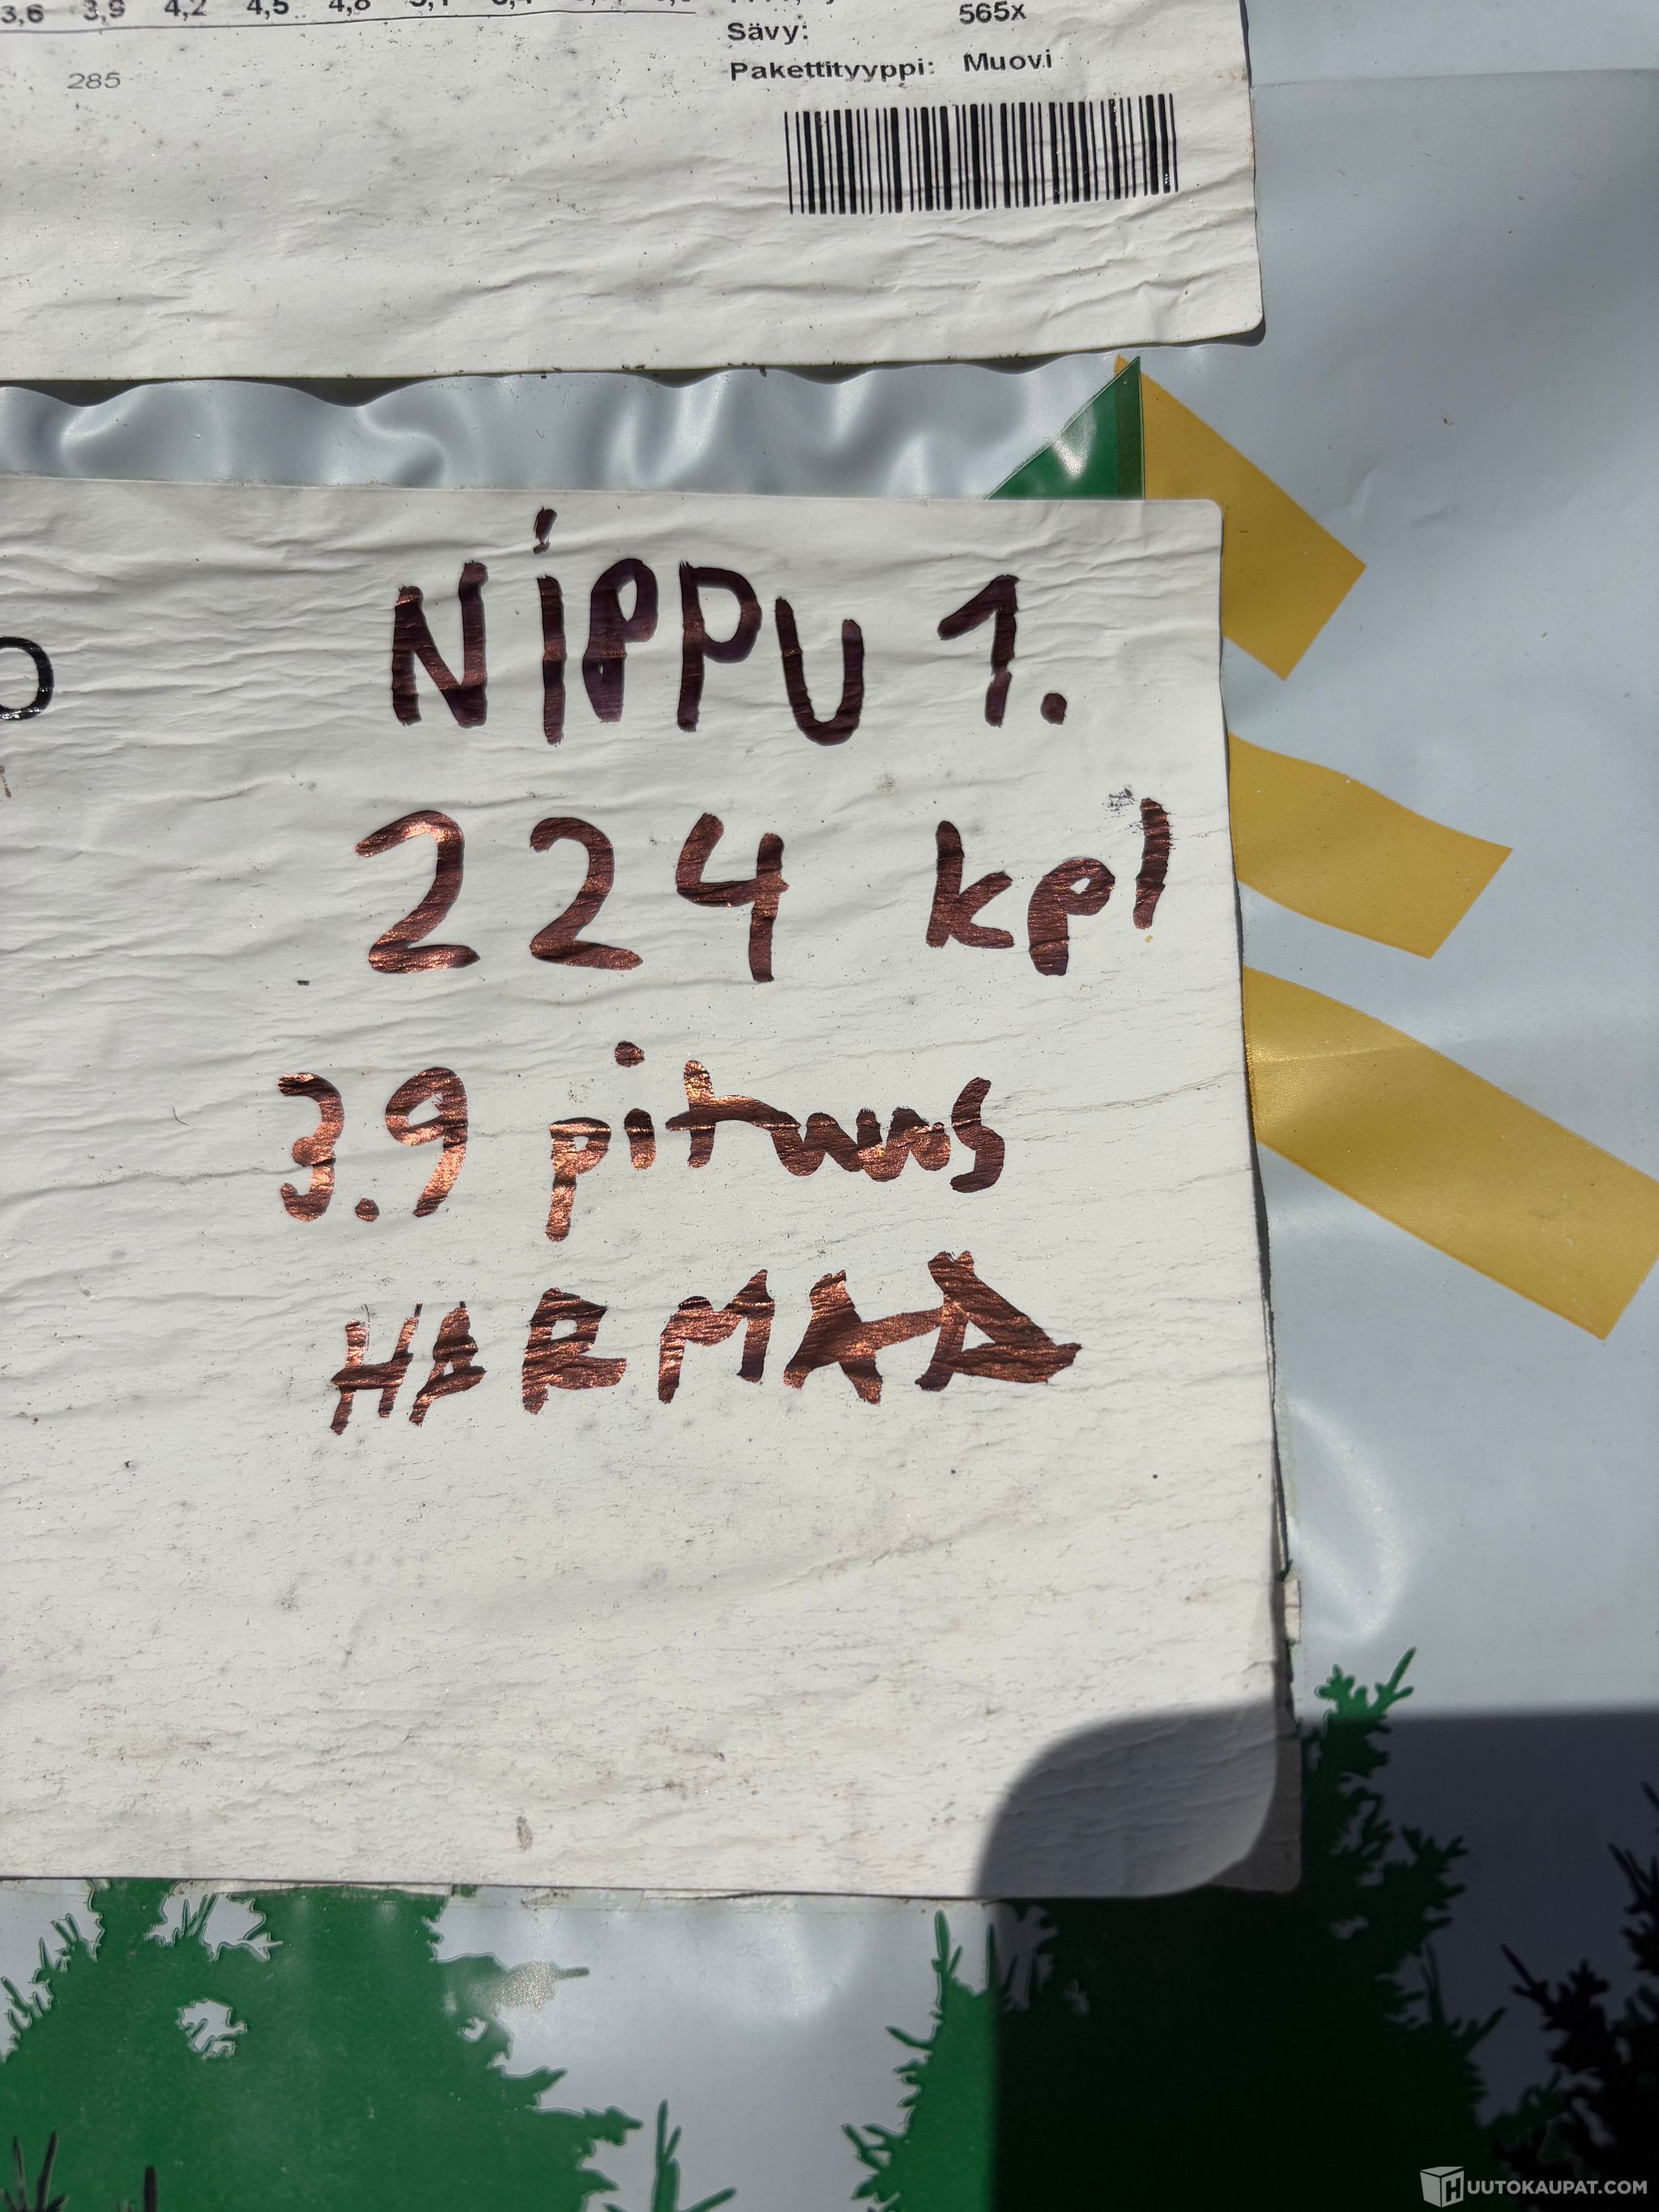 3,6 3,9 4,2 4,5 4,8
565x
Sävy:
Pakettityyppi: Muovi
285
NiPPU 1.
224 kpl
3.9 pituus
HARMAA
HUUTOKAUPAT.COM